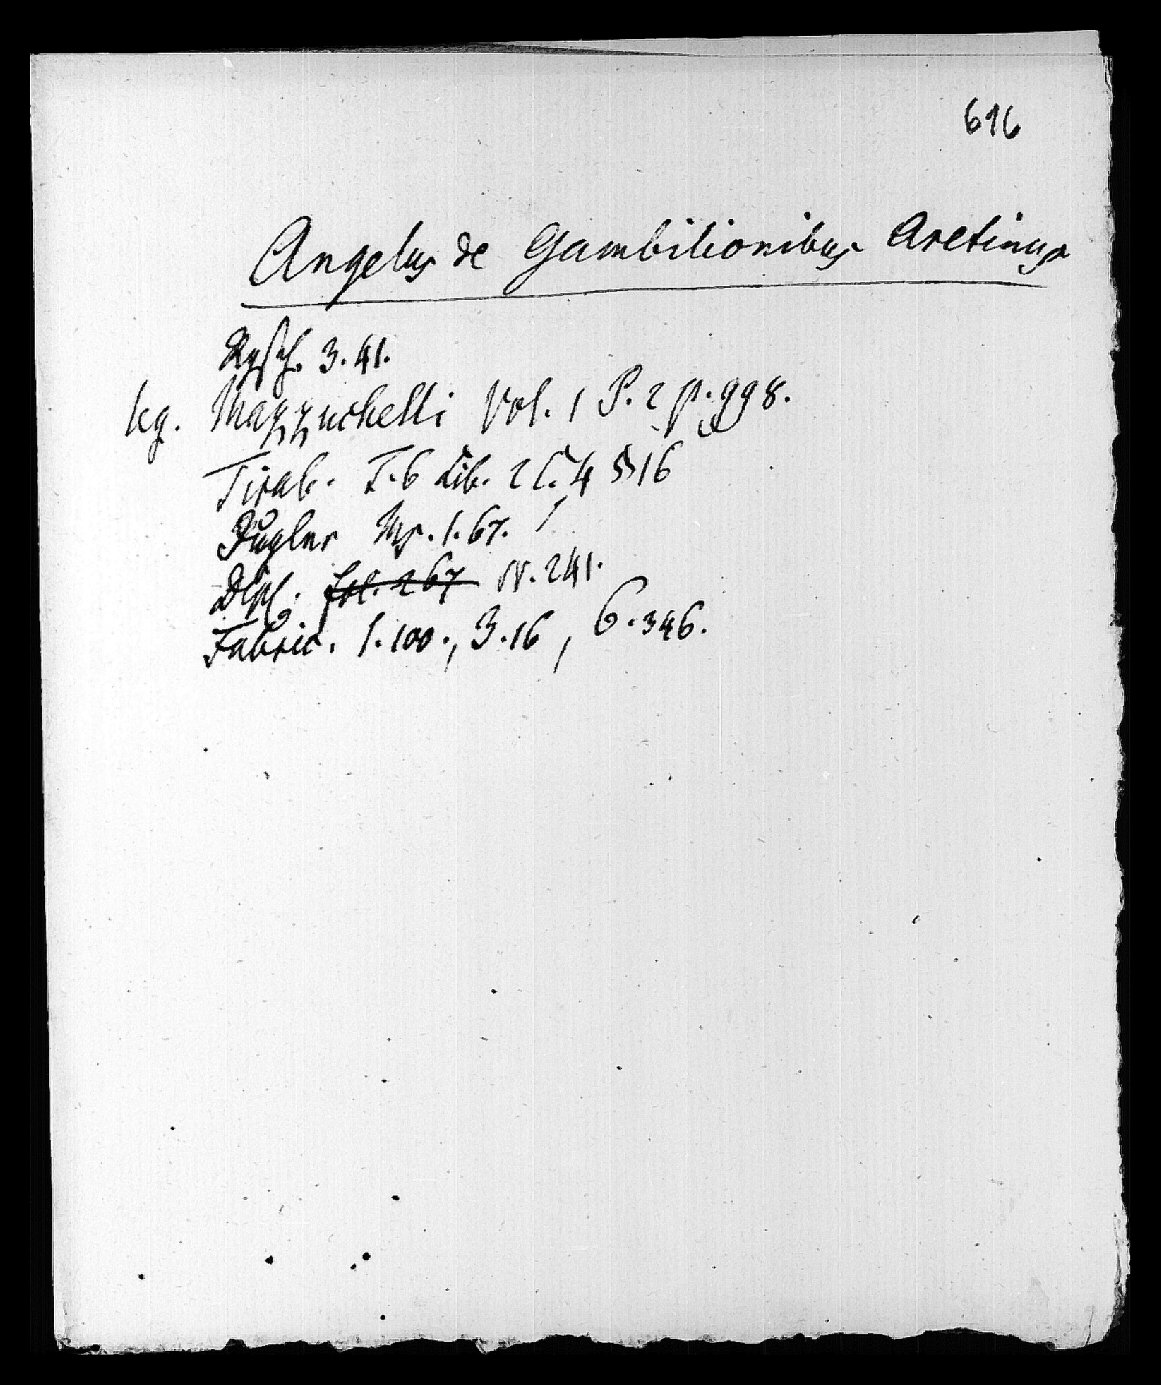 616
Angelus de Gambilionibus Aretinus
3.41.
lg. Mazzuchelli Vol. 1 P. 2 p. 998.
Tirab. T. 6 Lib. 2 C. 4 § 16
Zügler Mp. 1. 67.
Dipl. fol. 267 N. 241.
Fabric. 1. 100., 3. 16, 6. 346.